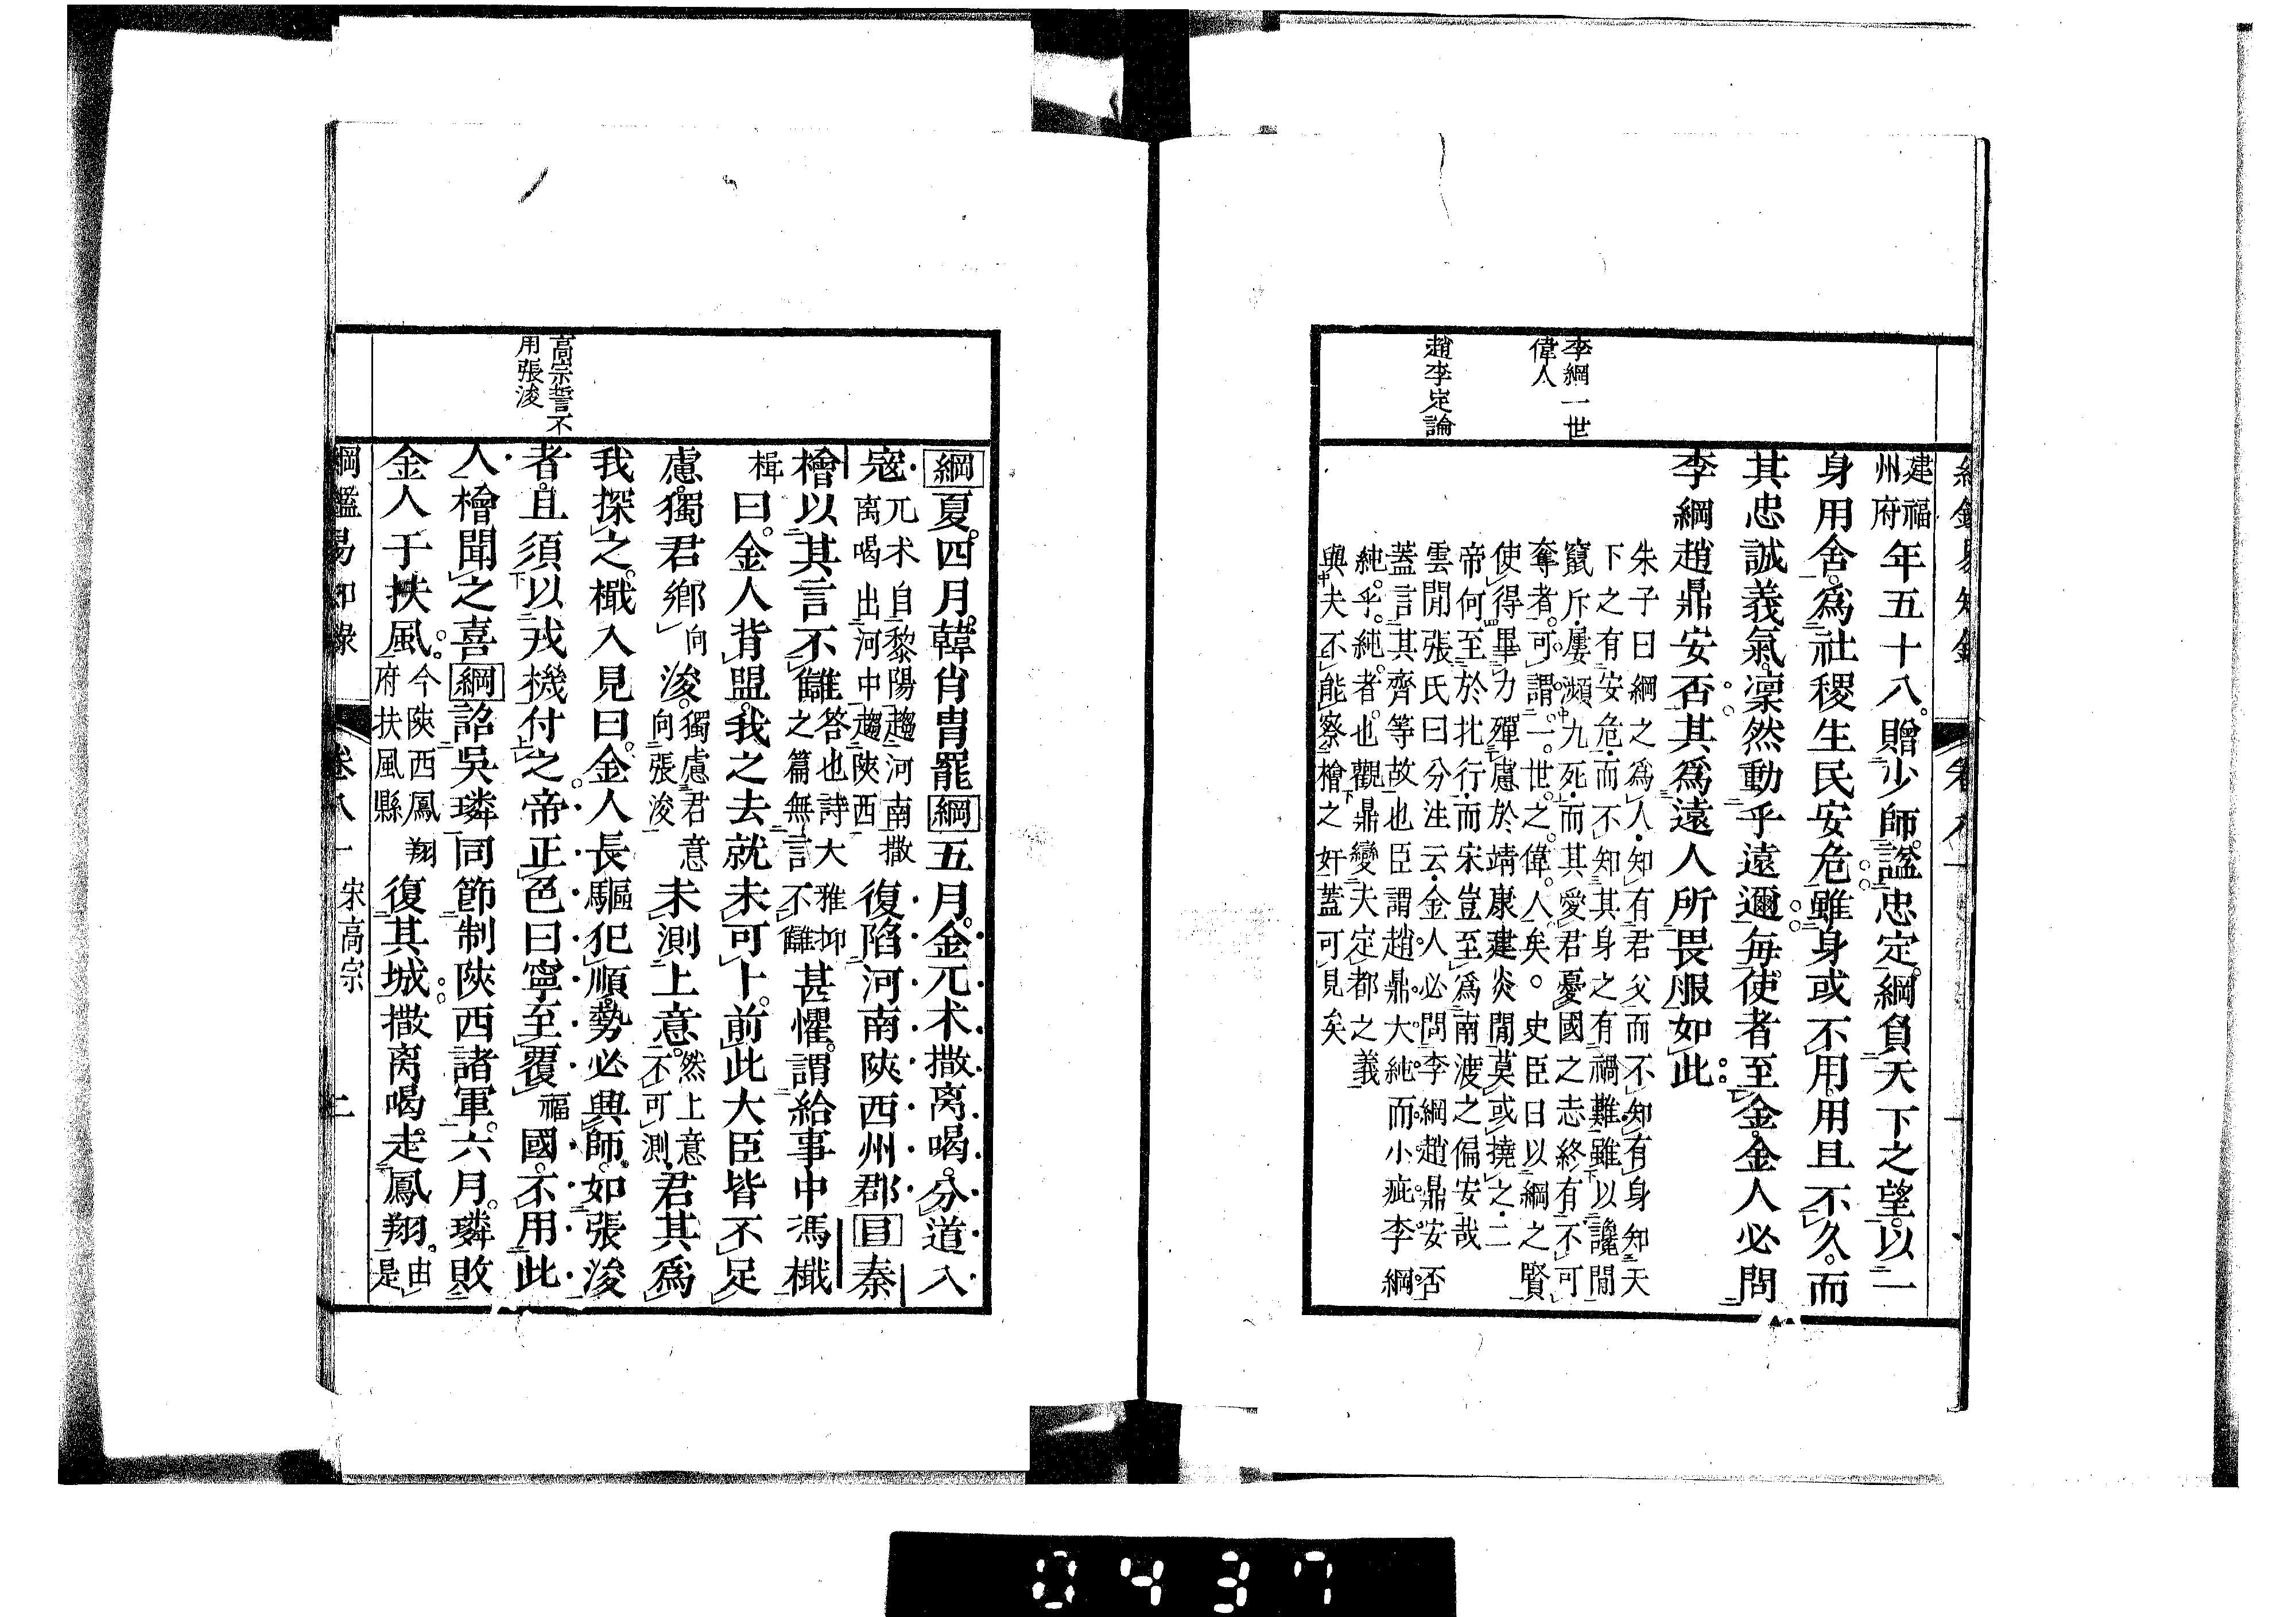 李綱一世
偉人
趙李定論
建福
州府
年五十八。贈少師。諡忠定。綱負天下之望。以一
身用舍。爲社稷生民安危。雖身或不用。用且不久。而
其忠誠義氣。凜然動乎遠邇。每使者至金。金人必問
李綱趙鼎安否。其爲遠人所畏服如此
朱子曰綱之爲人。知有君父而不知有身知天
下之有安危。而不知其身之有禍難雖以讒閒
竄斥。屢瀕九死。而其愛君憂國之志終有不可
奪者。可謂一世之偉人矣。○史臣曰以綱之賢
使得畢力殫慮於靖康建炎閒莫或撓之。二
帝何至於北行。而宋豈至爲南渡之偏安哉
雲閒張氏曰分注云。金人必問李綱趙鼎安否
蓋言其齊等故也臣謂趙鼎大純而小疵李綱
純乎純者也觀鼎變夫定都之義
與夫不能察檜之奸蓋可見矣
高宗誓不
用張浚
綱夏。四月。韓肖胄罷綱五月。金兀朮撒离喝。分道入
寇。
兀朮自黎陽趨河南撒
离喝出河中趨陝西
復陷河南陝西州郡目秦
檜以其言不讎
答也詩大雅抑
之篇無言不讎
甚懼。謂給事中馮檝
楫
曰。金人背盟。我之去就未可卜。前此大臣皆不足
慮。獨君鄕
向
浚。
獨慮君意
向張浚
未測上意。
然上意
不可測
君其爲
我探之。檝入見曰。金人長驅犯順。勢必興師。如張浚
者。且須以戎機付之。帝正色曰。寧至覆
福
國。不用此
人。檜聞之喜綱詔吳璘同節制陝西諸軍。六月。璘敗
金人于扶風。
今陝西鳳翔
府扶風縣
復其城。撒离喝走鳳翔。
由
是
綱鑑易知錄
卷八一
宋高宗
二